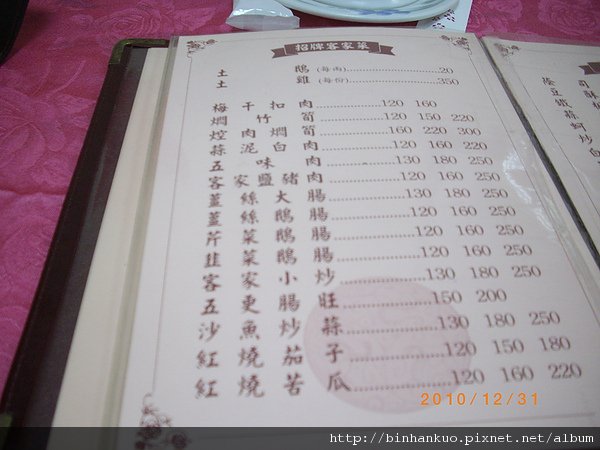 招牌客家菜
土 鵝 (每肉)............20
土 雞 (每份)............350
梅干扣肉............120 160
燜竹筍............120 150 220
焢肉燜筍............160 220 300
蒜泥白肉............120 160 220
五味肉............130 180 250
客家鹽豬肉............120 160 250
薑絲大腸............130 180 250
薑絲鵝腸............120 160 250
芹菜鵝腸............120 160 250
韭菜鵝腸............120 160 250
客家小炒............130 180 250
五更腸旺............150 200
沙魚炒蒜............130 180 250
紅燒茄子............120 150 180
紅燒苦瓜............120 160 220
2010/12/31
http://binhankuo.pixnet.net/album